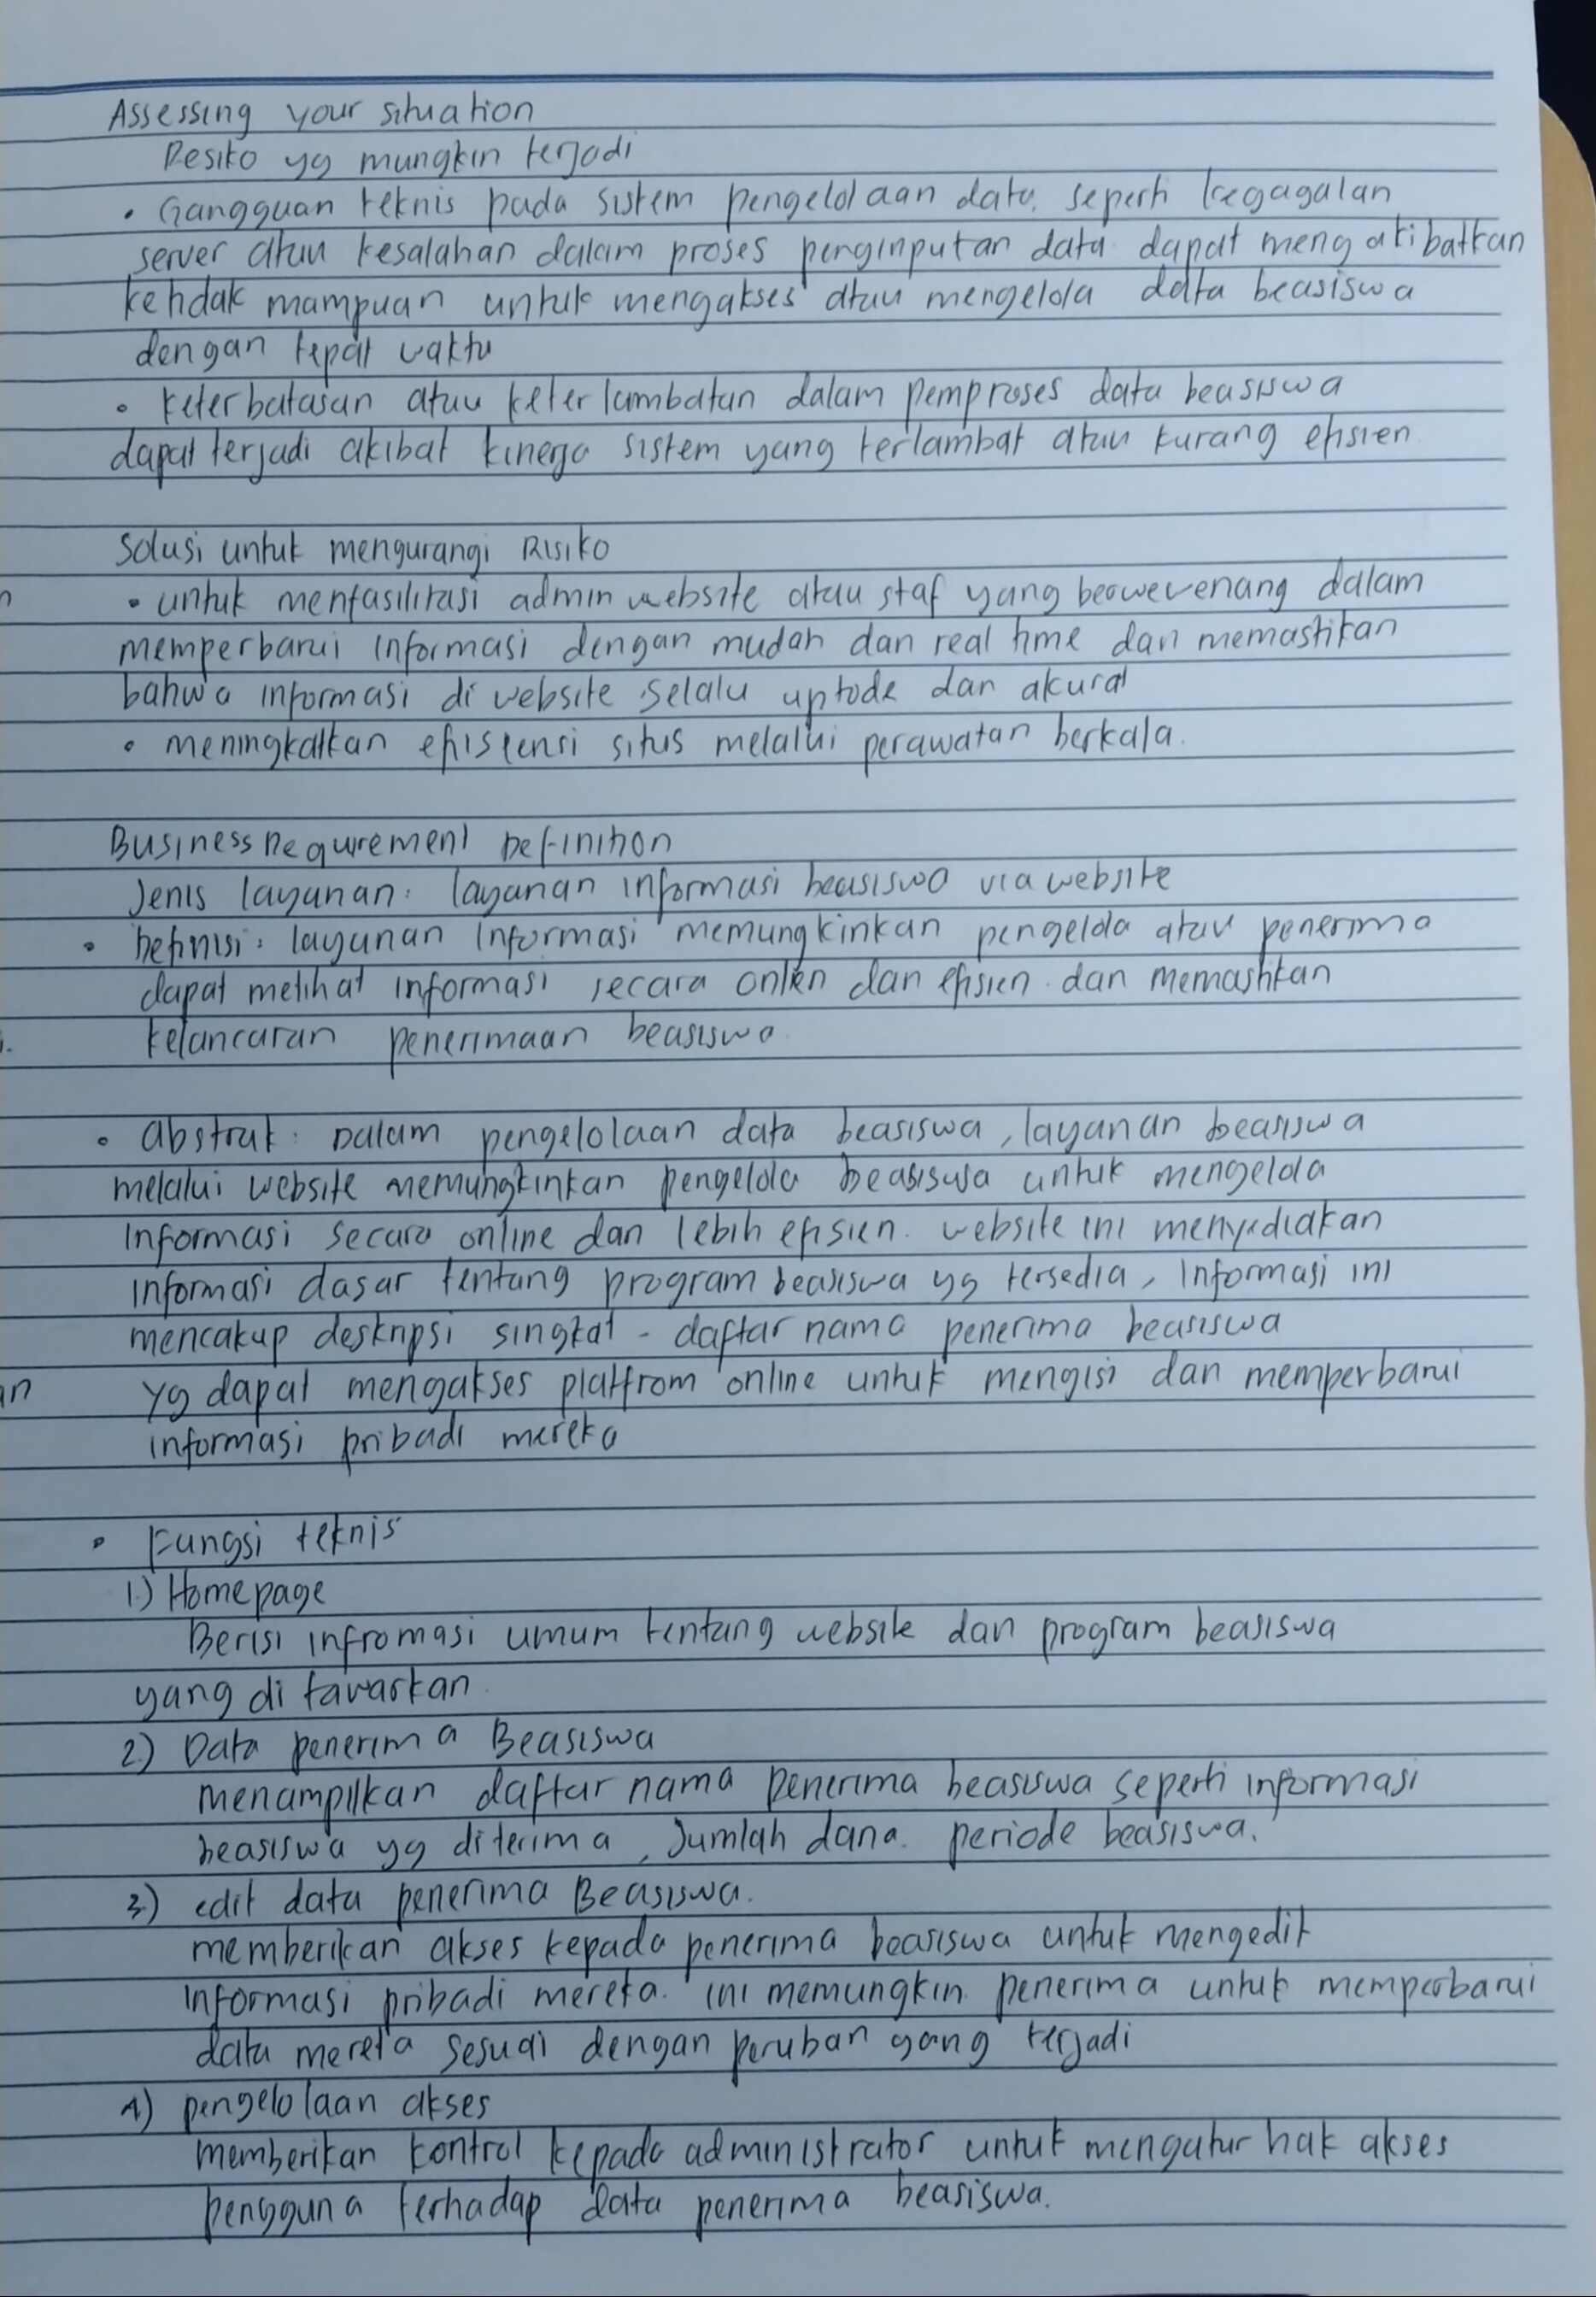 Assessing your situation
Resiko yg mungkin terjadi
• Gangguan teknis pada sistem pengelolaan data, seperti kegagalan
server atau kesalahan dalam proses penginputan data dapat mengakibatkan
ketidak mampuan untuk mengakses atau mengelola data beasiswa
dengan tepat waktu
• keterbatasan atau keterlambatan dalam pemproses data beasiswa
dapat terjadi akibat kinerja sistem yang terlambat atau kurang efisien
Solusi untuk mengurangi Risiko
n
• untuk menfasilitasi admin website atau staf yang berwewenang dalam
memperbarui informasi dengan mudah dan real time dan memastikan
bahwa informasi di website selalu uptode dan akurat
• meningkatkan efisiensi situs melalui perawatan berkala.
Business Requirement Definition
Jenis layanan: layanan informasi beasiswa via website
• Definisi: layanan informasi memungkinkan pengelola atau penerima
dapat melihat informasi secara onlien dan efisien dan memastikan
kelancaran penerimaan beasiswa
• abstrak: Dalam pengelolaan data beasiswa, layanan beasiswa
melalui website memungkinkan pengelola beasiswa untuk mengelola
Informasi secara online dan lebih efisien. website ini menyediakan
informasi dasar tentang program beasiswa yg tersedia, Informasi ini
mencakup deskripsi singkat - daftar nama penerima beasiswa
an
yg dapat mengakses platfrom online untuk mengisi dan memperbarui
informasi pribadi mereka
• Fungsi teknis
1.) Homepage
Berisi infromasi umum tentang website dan program beasiswa
yang di tawarkan.
2) Data penerima Beasiswa
menampilkan daftar nama penerima beasiswa seperti informasi
beasiswa yg diterima, Jumlah dana. periode beasiswa.
3) edit data penerima Beasiswa.
memberikan akses kepada penerima beasiswa untuk mengedit
informasi pribadi mereka. ini memungkin penerima untuk memperbarui
data mereka sesuai dengan peruban yang terjadi
4) pengelolaan akses
memberikan kontrol kepada administrator untuk mengatur hak akses
pengguna terhadap data penerima beasiswa.